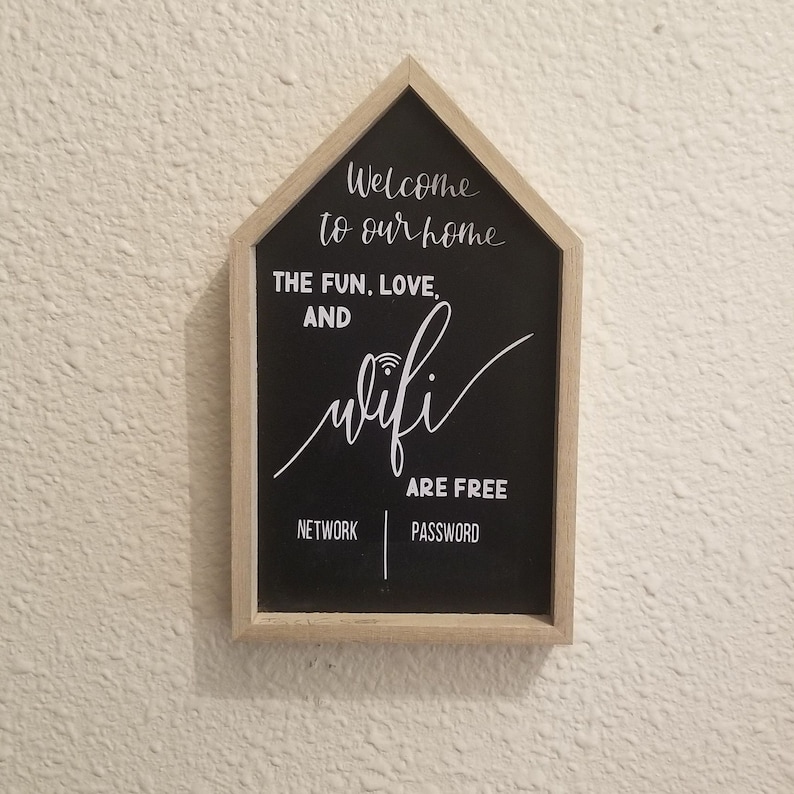 Welcome
to our home
THE FUN, LOVE,
AND
wifi
ARE FREE
NETWORK | PASSWORD